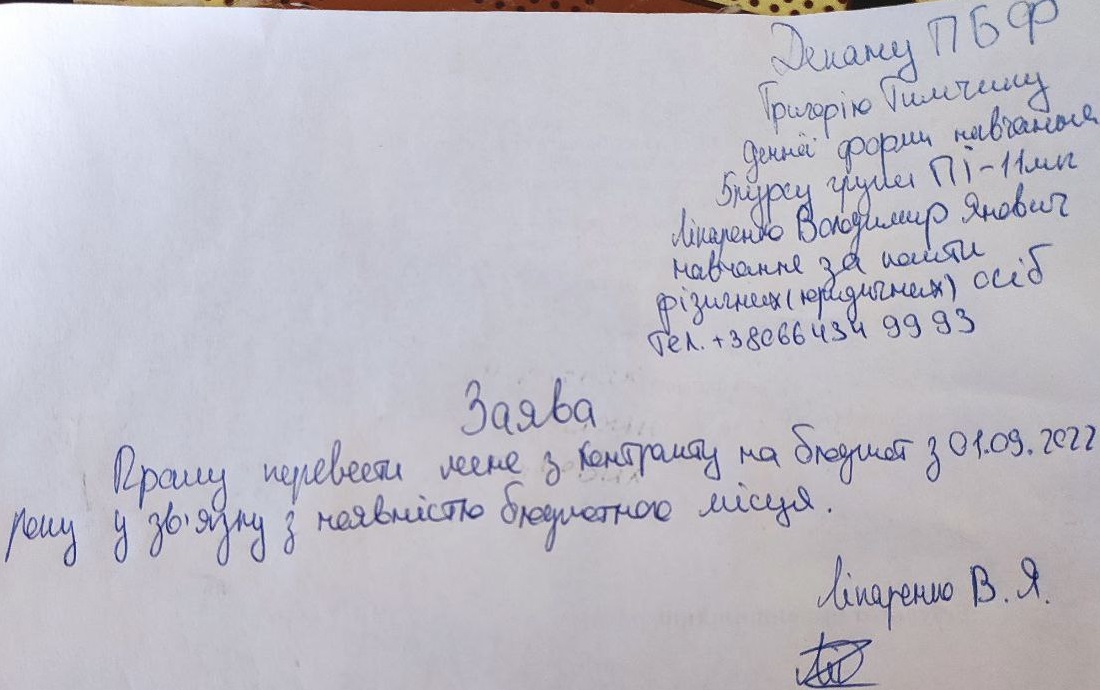 Декану ПБФ
Григорію Тимчику
денної форми навчання
5 курсу групи ПІ-11мп
Лікаренко Володимир Янович
навчання за кошти
фізичних (юридичних) осіб
Тел. +38066434 99 93
Заява
Прошу перевести мене з контракту на бюджет з 01.09.2022
року у зв'язку з наявністю бюджетного місця.
Лікаренко В. Я.